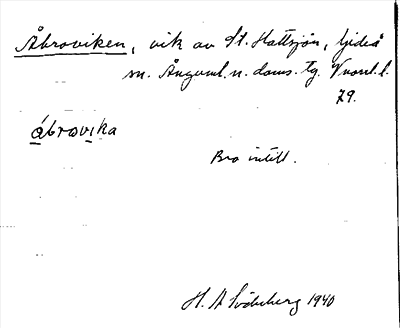 Åbroviken, vik av St. Hattsjön, Gideå
sn. Ångerml. n. doms. tg. Vnorrl. l.
79.
ábrovika
Bro intill.
H. A. Söderberg 1940